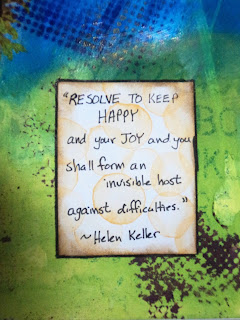 "RESOLVE TO KEEP
HAPPY
and your JOY and you
shall form an
invisible host
against difficulties."
~Helen Keller